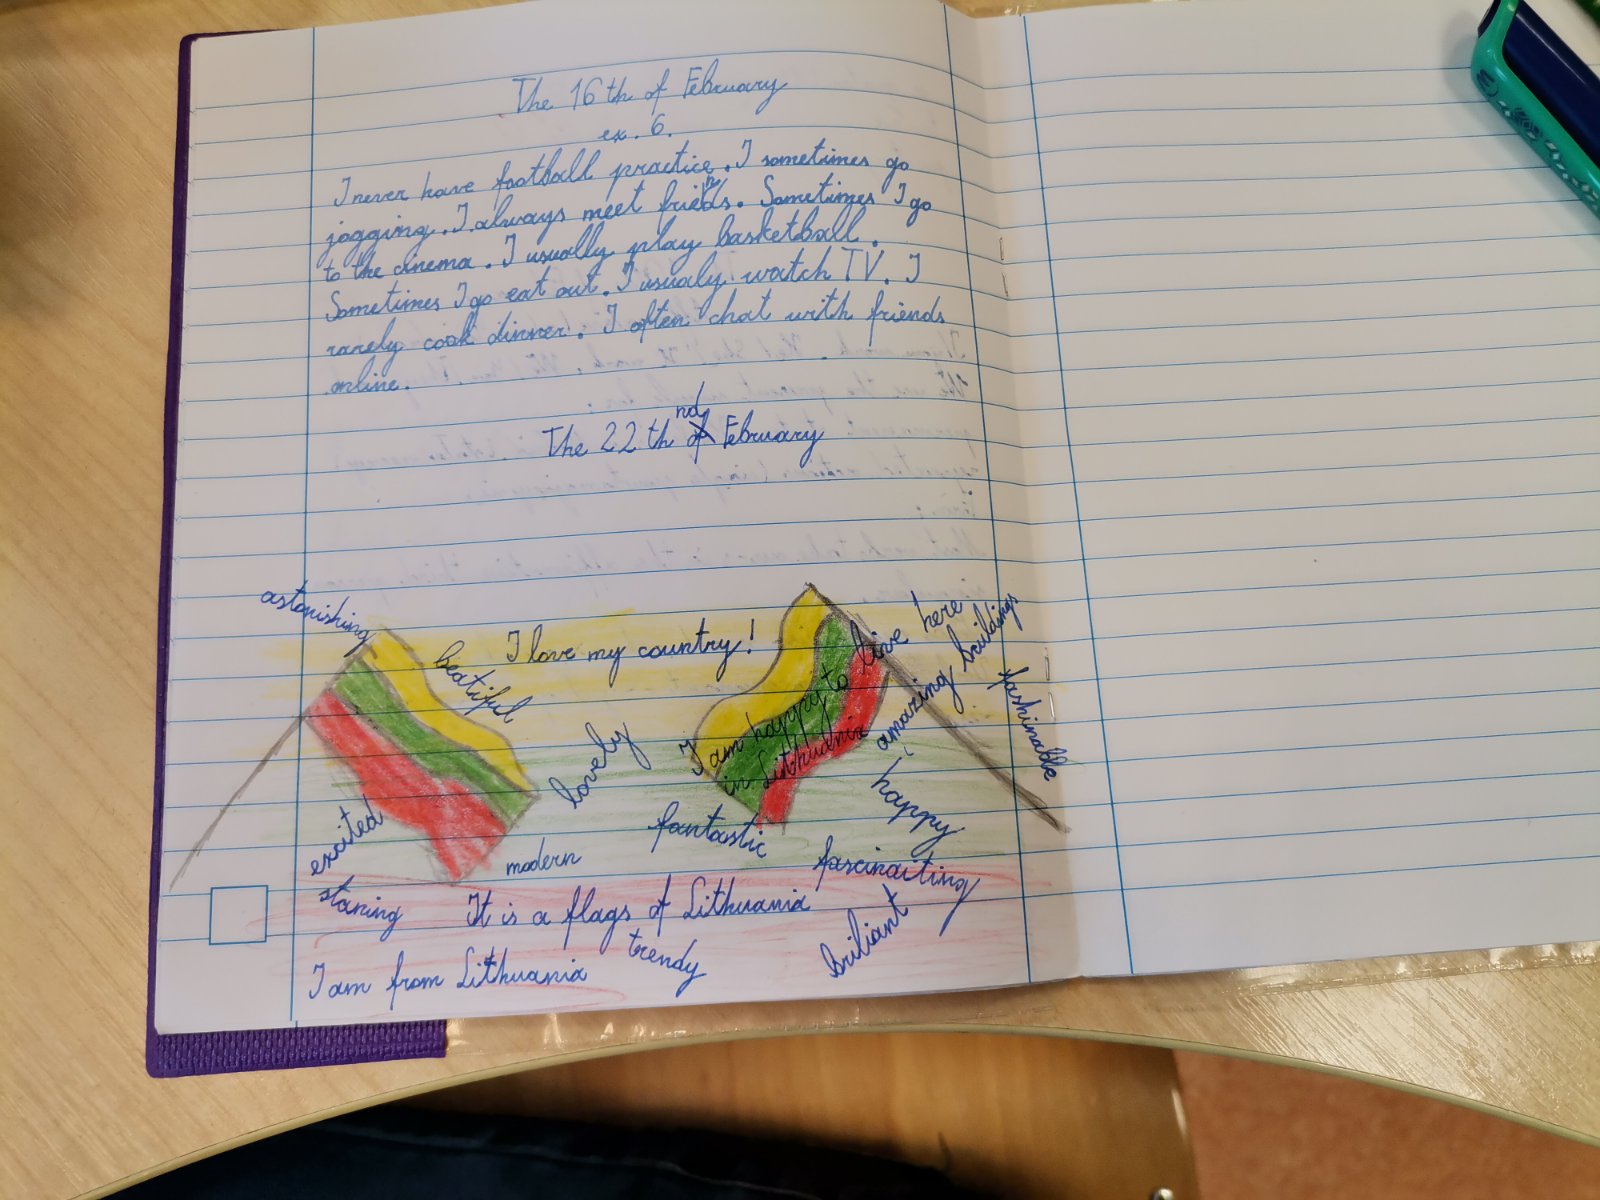 The 16th of February
ex. 6.
I never have football practice. I sometimes go
jogging. I always meet friends. Sometimes I go
to the cinema. I usually play basketball.
Sometimes I go eat out. I usualy watch TV. I
rarely cook dinner. I often chat with friends
online.
nd
The 22th of February
astonishing
I love my country!
beatiful
I am happy to live here
in Lithuania
amazing buildings
fashinable
lovely
happy
excited
fantastic
modern
fascinaiting
staning
It is a flags of Lithuania
briliant
trendy
I am from Lithuania